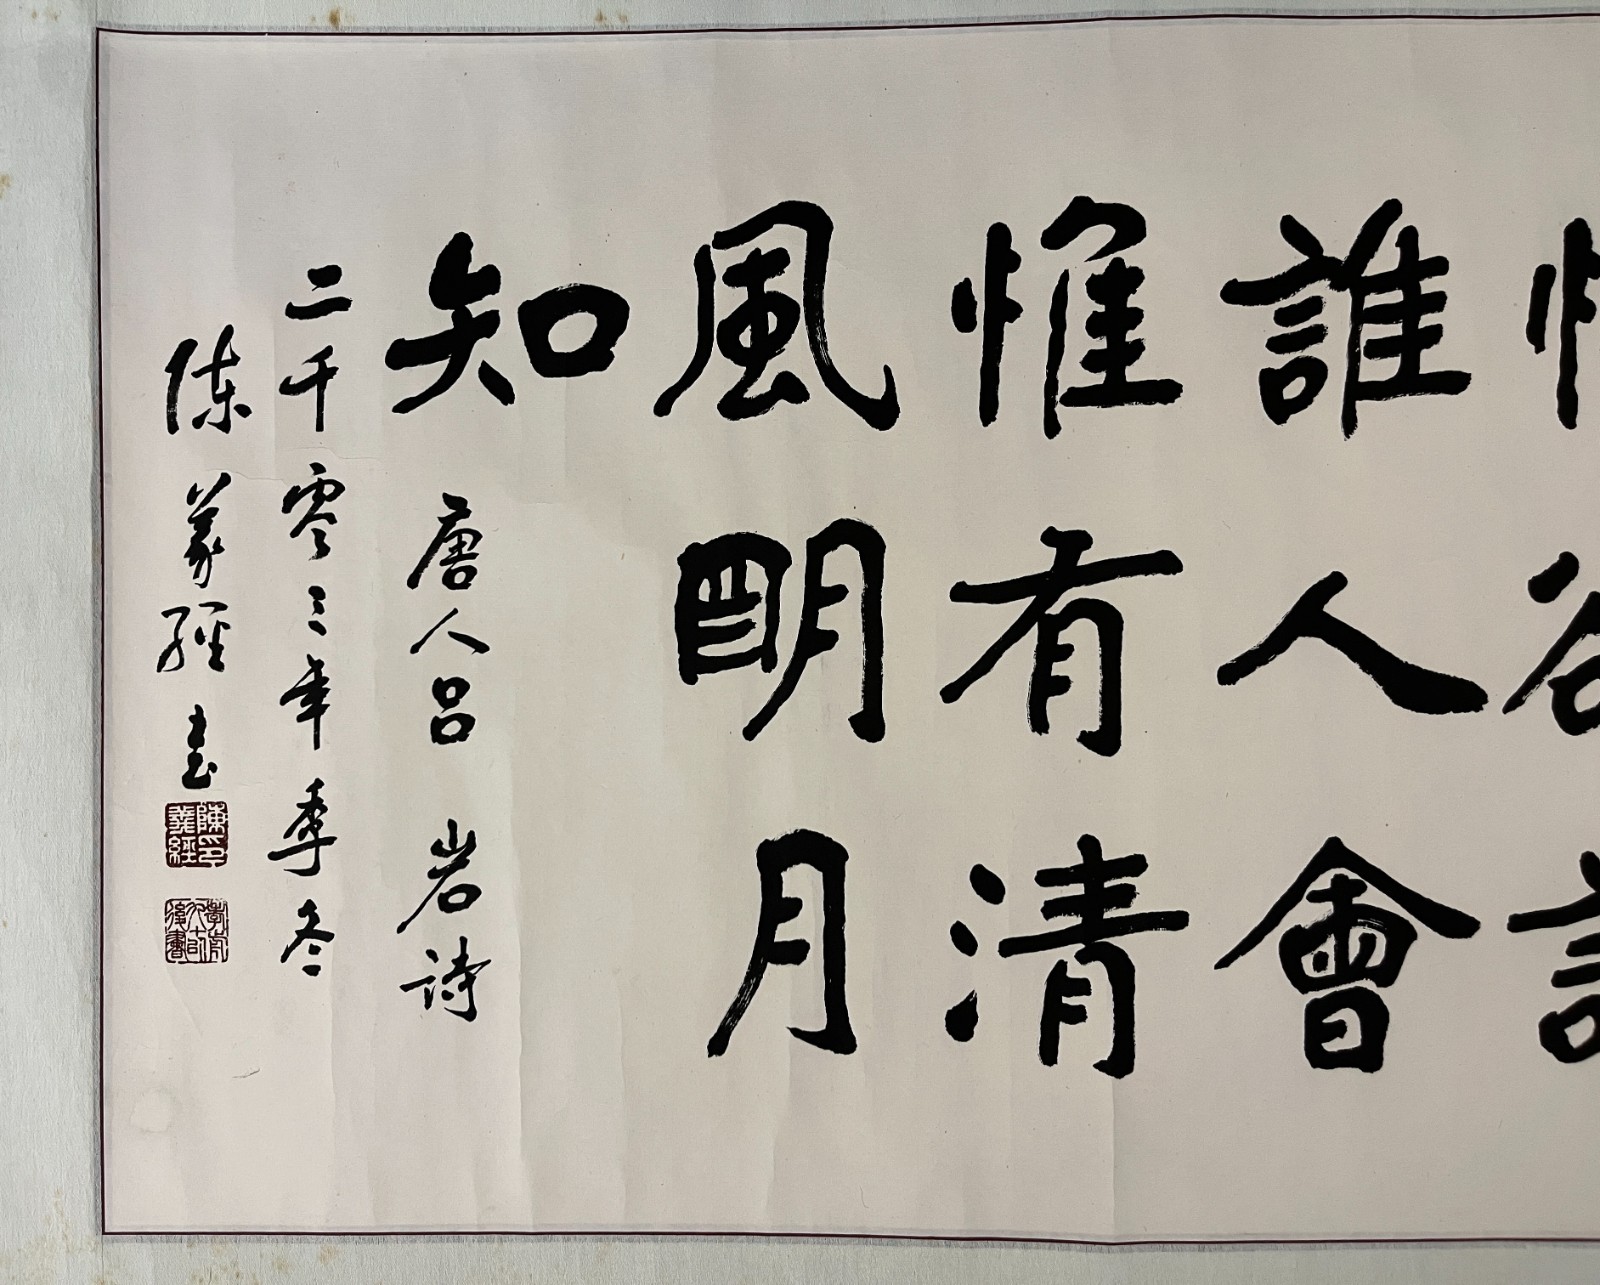 誰人會
惟有清
風明月
知
唐人呂岩詩
二千零三年季冬
陳義經書
陳印義經